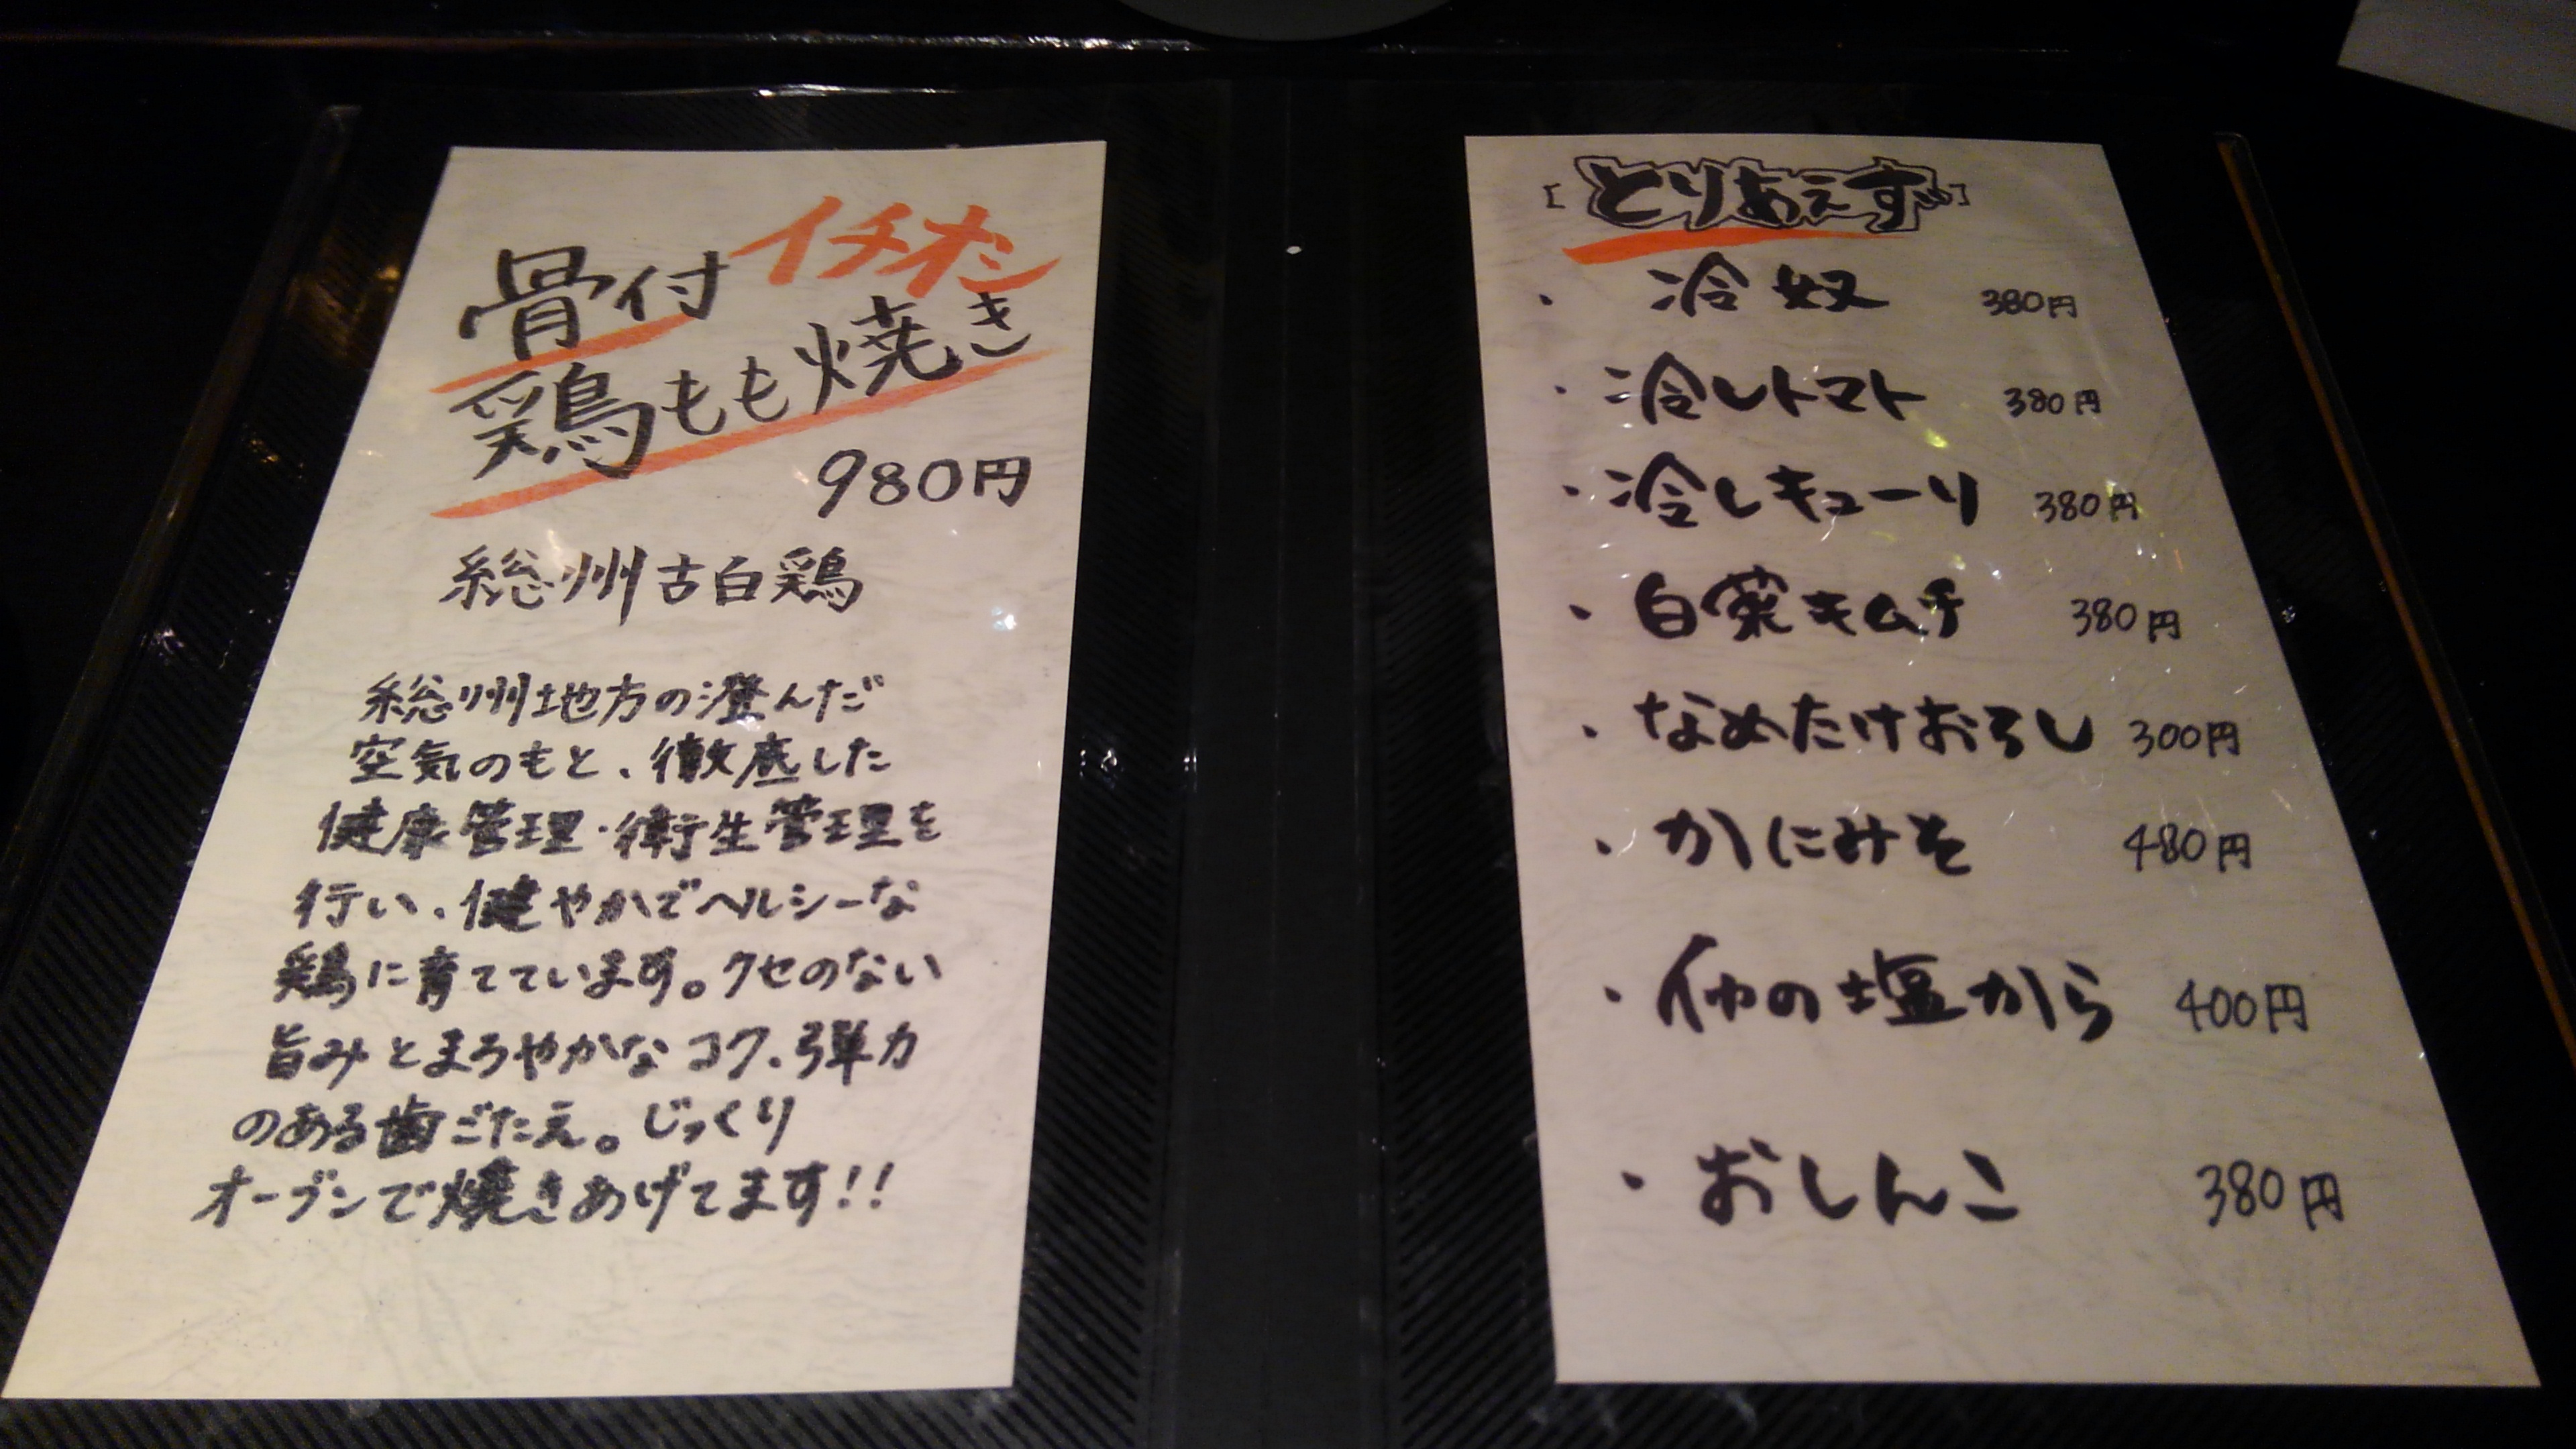 イチオシ
骨付
鶏もも焼き
980円
総州古白鶏
総州地方の澄んだ
空気のもと、徹底した
健康管理・衛生管理を
行い、健やかでヘルシーな
鶏に育てています。クセのない
旨みとまろやかなコク、弾力
のある歯ごたえ。じっくり
オーブンで焼きあげてます!!
[とりあえずぅ]
・冷奴 380円
・冷しトマト 380円
・冷しキューリ 380円
・白菜キムチ 380円
・なめたけおろし 300円
・かにみそ 480円
・イカの塩から 400円
・おしんこ 380円